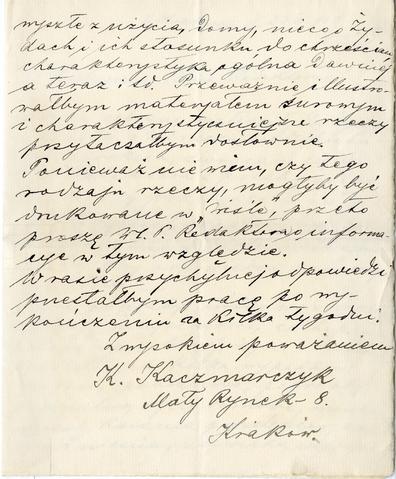 wyszłe z użycia, Domy, nieco o Ży-
dach i ich stosunku do chrześcian,
charakterystyka ogólna Dawniej
a teraz i td. Przeważnie illustro-
wałbym materjałem surowym
i charakterystyczniejsze rzeczy
przytaczałbym dosłownie.
Ponieważ nie wiem, czy tego
rodzaju rzeczy, mogłyby być
drukowane w „Wiśle", przeto
proszę Wł. P. Redaktora o informa-
cye w tym względzie.
W razie przychylnej odpowiedzi
przesłałbym pracę po wy-
kończeniu za kilka tygodni.
Z wysokiem poważaniem
K. Kaczmarczyk
Mały Rynek - 8.
Kraków.